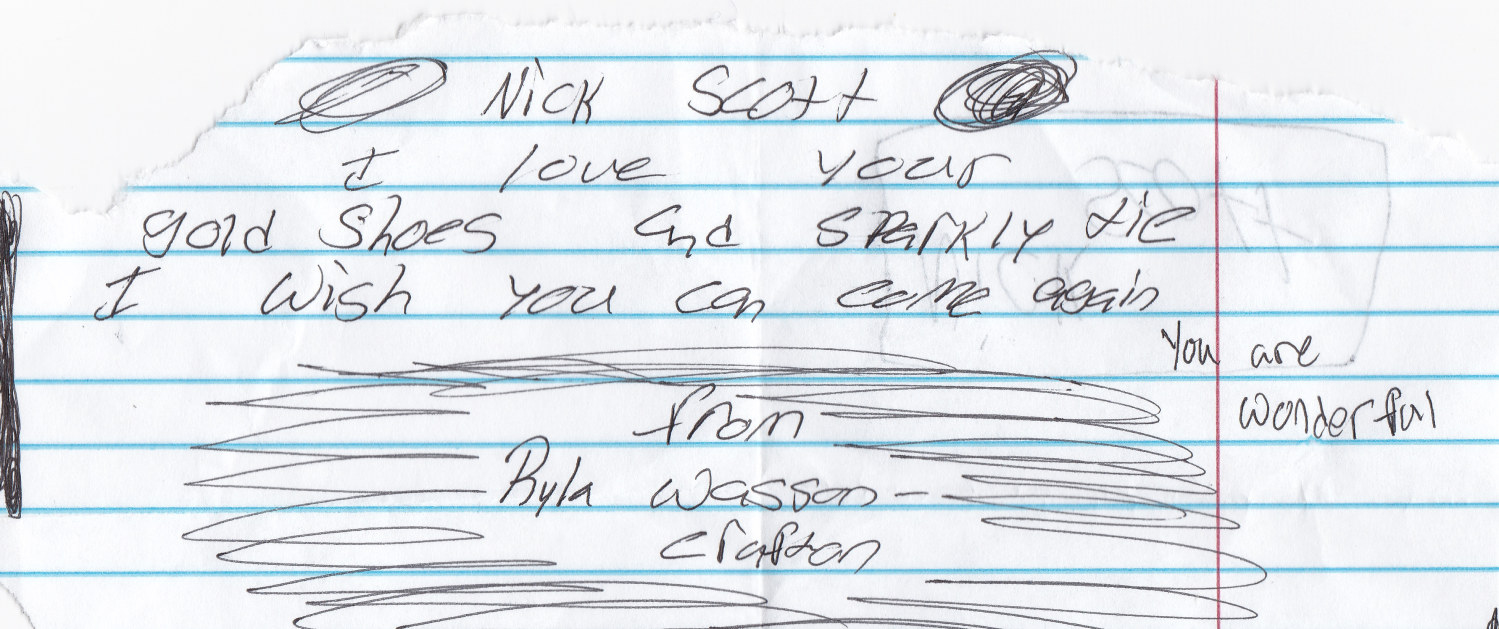 Nick Scott
I love your
gold shoes and sparkly tie
I wish you can come again
You are
wonderful
from
Ryla Wasson-
Crafton